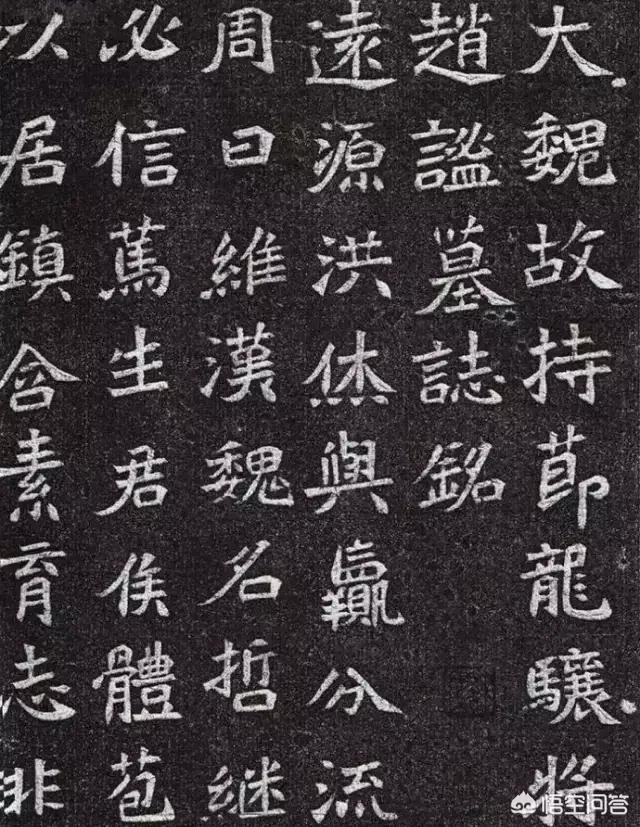 大魏故持莭龍驤將
趙謐墓誌銘
遠源洪烋與嬴分流
周曰維漢魏名哲継
必信篤生君侯體苞
以居鎮含素育志非
悟空问答